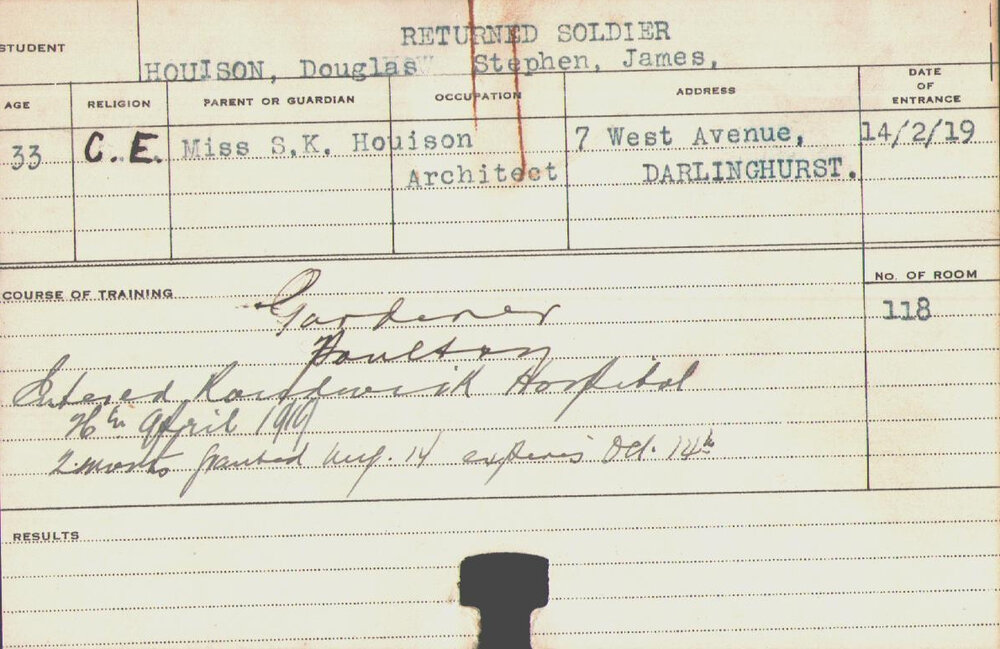 RETURNED SOLDIER
STUDENT
HOUISON, Douglas Stephen, James,
AGE RELIGION PARENT OR GUARDIAN OCCUPATION ADDRESS DATE OF ENTRANCE
33 C.E. Miss S.K. Houison 7 West Avenue, 14/2/19
Architect DARLINGHURST.
COURSE OF TRAINING NO. OF ROOM
Gardener 118
Poultry
Entered Randwick Hospital
April 1919
2 months granted Aug. 14 expires Oct. 14th
RESULTS